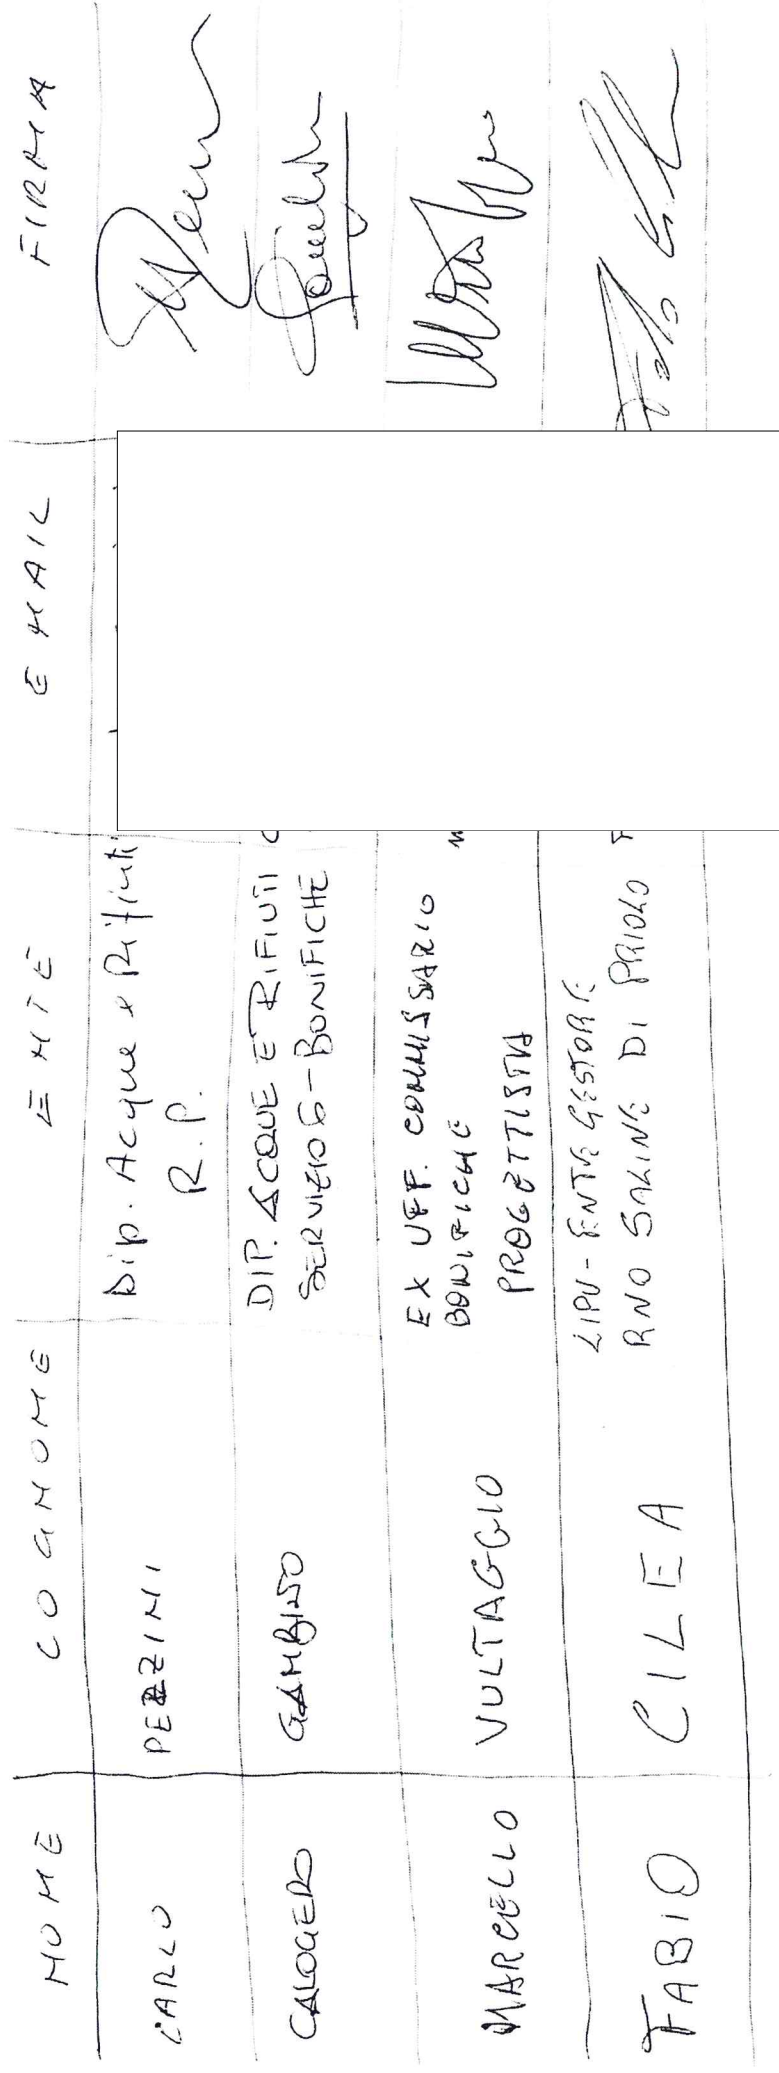 NOME COGNOME ENTE EMAIL FIRMA
CARLO PEZZINI Dip. Acque e Rifiuti
R.P.
CALOGERO GAMBINO DIP. ACQUE E RIFIUTI
SERVIZIO 6 - BONIFICHE
MARCELLO VULTAGGIO EX UFF. COMMISSARIO
BONIFICHE
PROGETTISTA
FABIO CILEA LIPU - ENTE GESTORE
RNO SALINE DI PRIOLO